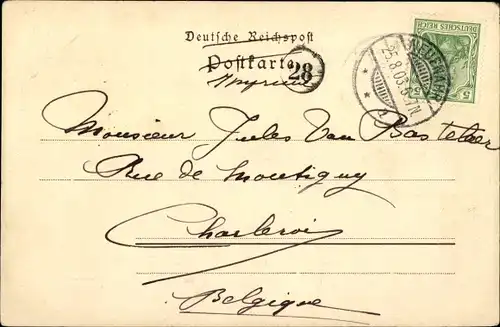 Deutsche Reichspost
Postkarte
Imprimé
28
DEUTSCHES REICH
5
5
25.8.03. 6-7N
Monsieur Jules Van Bastelaer
Rue de Montigny
Charleroi
Belgique